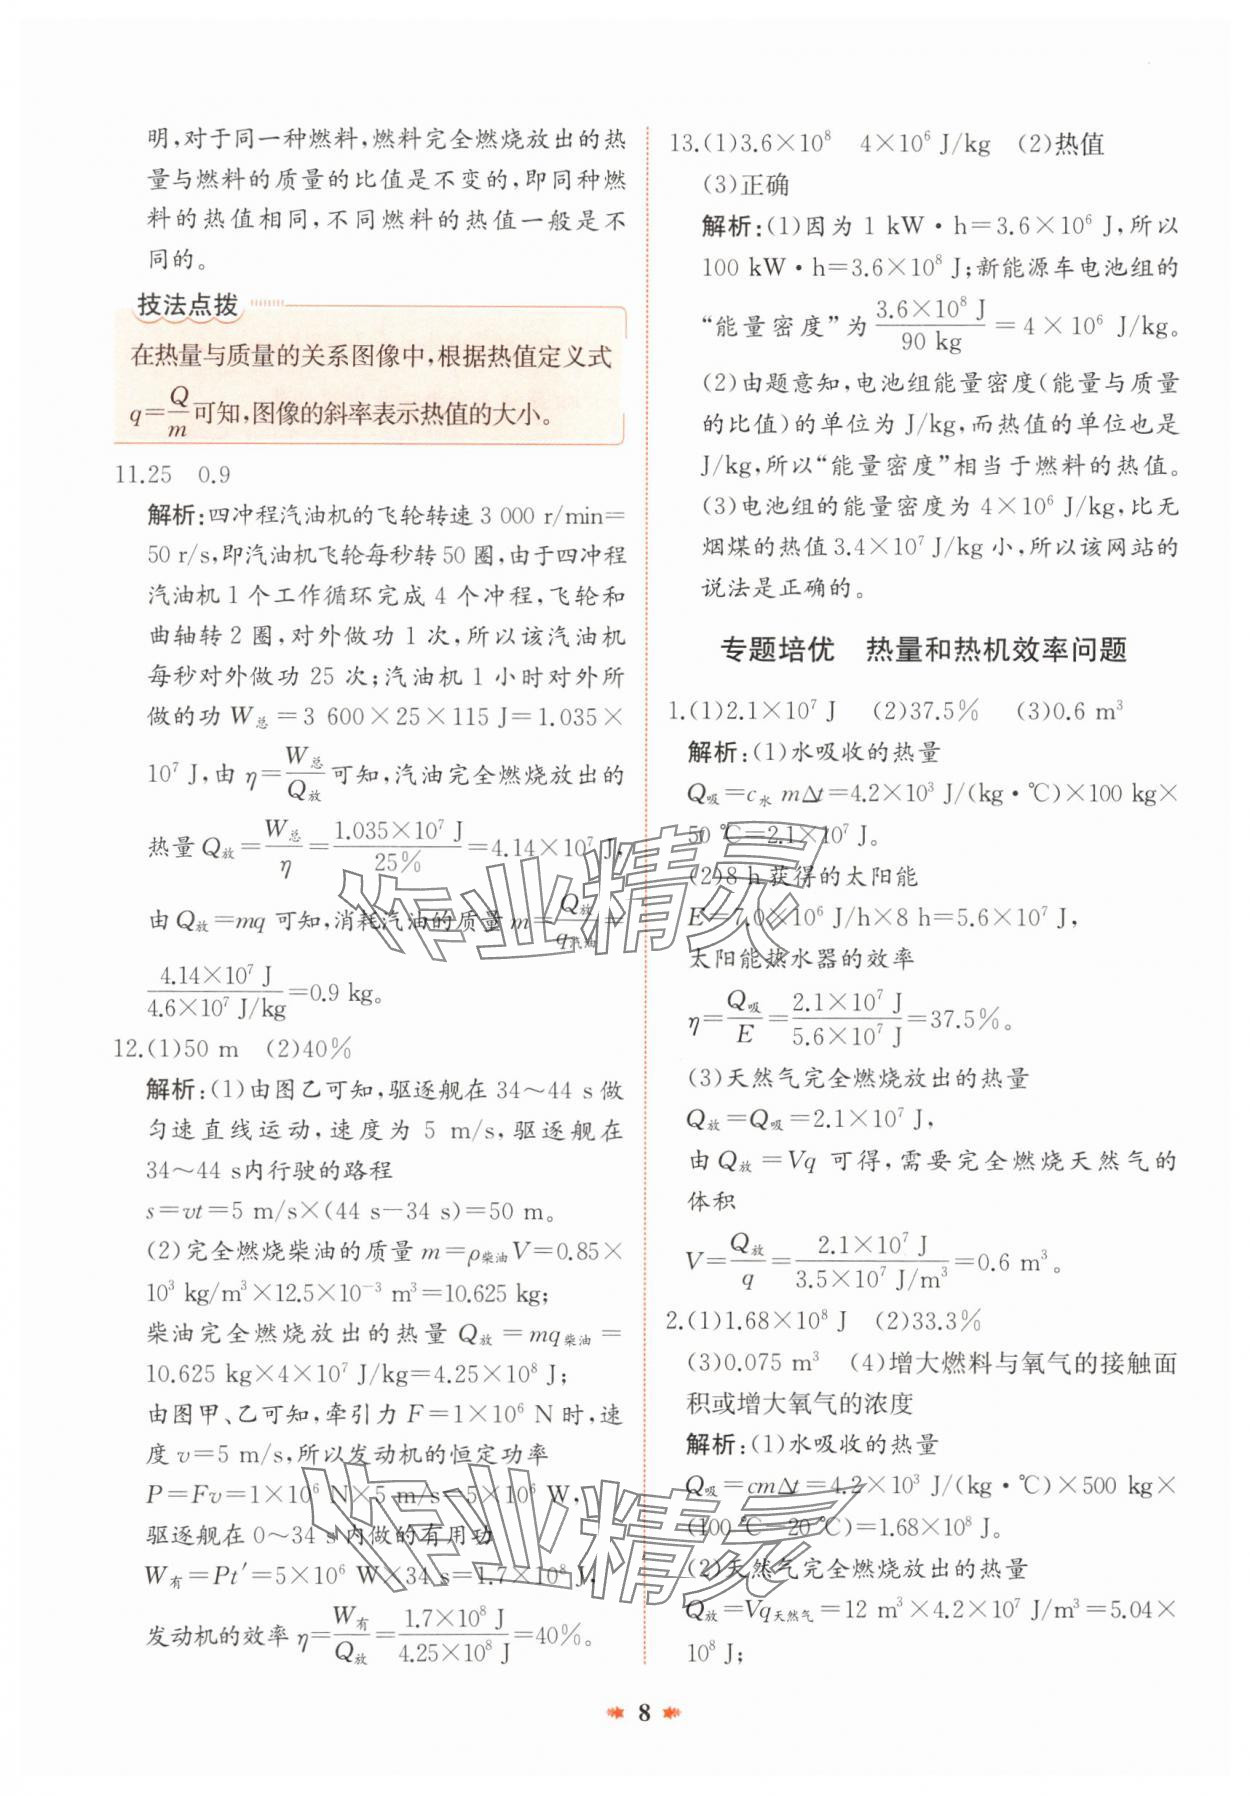 明,对于同一种燃料,燃料完全燃烧放出的热
量与燃料的质量的比值是不变的,即同种燃
料的热值相同,不同燃料的热值一般是不
同的。
技法点拨
在热量与质量的关系图像中,根据热值定义式
q=Q/m可知,图像的斜率表示热值的大小。
11.25 0.9
解析:四冲程汽油机的飞轮转速 3 000 r/min=
50 r/s,即汽油机飞轮每秒转 50 圈,由于四冲程
汽油机 1 个工作循环完成 4 个冲程,飞轮和
曲轴转 2 圈,对外做功 1 次,所以该汽油机
每秒对外做功 25 次;汽油机 1 小时对外所
做的功 W总=3 600×25×115 J=1.035×
10⁷ J,由 η=W总/Q放可知,汽油完全燃烧放出的
热量 Q放=W总/η=1.035×10⁷ J/25%=4.14×10⁷ J,
由 Q放=mq 可知,消耗汽油的质量 m=Q放/q汽油=
4.14×10⁷ J/4.6×10⁷ J/kg=0.9 kg。
12.(1)50 m (2)40%
解析:(1)由图乙可知,驱逐舰在 34~44 s 做
匀速直线运动,速度为 5 m/s,驱逐舰在
34~44 s内行驶的路程
s=vt=5 m/s×(44 s-34 s)=50 m。
(2)完全燃烧柴油的质量 m=ρ柴油V=0.85×
10³ kg/m³×12.5×10⁻³ m³=10.625 kg;
柴油完全燃烧放出的热量 Q放=mq柴油=
10.625 kg×4×10⁷ J/kg=4.25×10⁸ J;
由图甲、乙可知,牵引力 F=1×10⁶ N 时,速
度 v=5 m/s,所以发动机的恒定功率
P=Fv=1×10⁶ N×5 m/s=5×10⁶ W,
驱逐舰在 0~34 s内做的有用功
W有=Pt′=5×10⁶ W×34 s=1.7×10⁸ J,
发动机的效率 η=W有/Q放=1.7×10⁸ J/4.25×10⁸ J=40%。
13.(1)3.6×10⁸ 4×10⁶ J/kg (2)热值
(3)正确
解析:(1)因为 1 kW·h=3.6×10⁶ J,所以
100 kW·h=3.6×10⁸ J;新能源车电池组的
“能量密度”为3.6×10⁸ J/90 kg=4×10⁶ J/kg。
(2)由题意知,电池组能量密度(能量与质量
的比值)的单位为 J/kg,而热值的单位也是
J/kg,所以“能量密度”相当于燃料的热值。
(3)电池组的能量密度为 4×10⁶ J/kg,比无
烟煤的热值 3.4×10⁷ J/kg 小,所以该网站的
说法是正确的。
专题培优 热量和热机效率问题
1.(1)2.1×10⁷ J (2)37.5% (3)0.6 m³
解析:(1)水吸收的热量
Q吸=c水 mΔt=4.2×10³ J/(kg·℃)×100 kg×
50 ℃=2.1×10⁷ J。
(2)8 h 获得的太阳能
E=7.0×10⁶ J/h×8 h=5.6×10⁷ J,
太阳能热水器的效率
η=Q吸/E=2.1×10⁷ J/5.6×10⁷ J=37.5%。
(3)天然气完全燃烧放出的热量
Q放=Q吸=2.1×10⁷ J,
由 Q放=Vq 可得,需要完全燃烧天然气的
体积
V=Q放/q=2.1×10⁷ J/3.5×10⁷ J/m³=0.6 m³。
2.(1)1.68×10⁸ J (2)33.3%
(3)0.075 m³ (4)增大燃料与氧气的接触面
积或增大氧气的浓度
解析:(1)水吸收的热量
Q吸=cmΔt=4.2×10³ J/(kg·℃)×500 kg×
(100 ℃-20 ℃)=1.68×10⁸ J。
(2)天然气完全燃烧放出的热量
Q放=Vq天然气=12 m³×4.2×10⁷ J/m³=5.04×
10⁸ J;
8
作业精灵
作业精灵